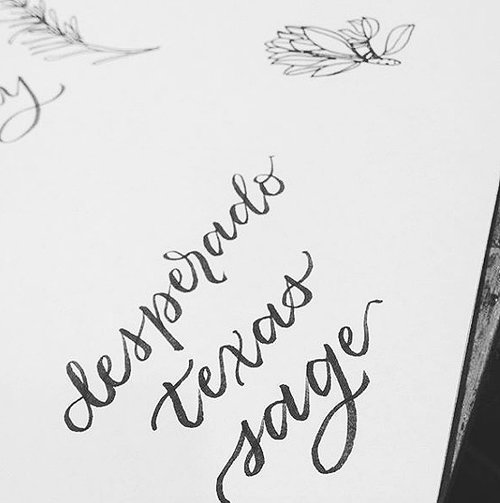 desperado
texas
sage